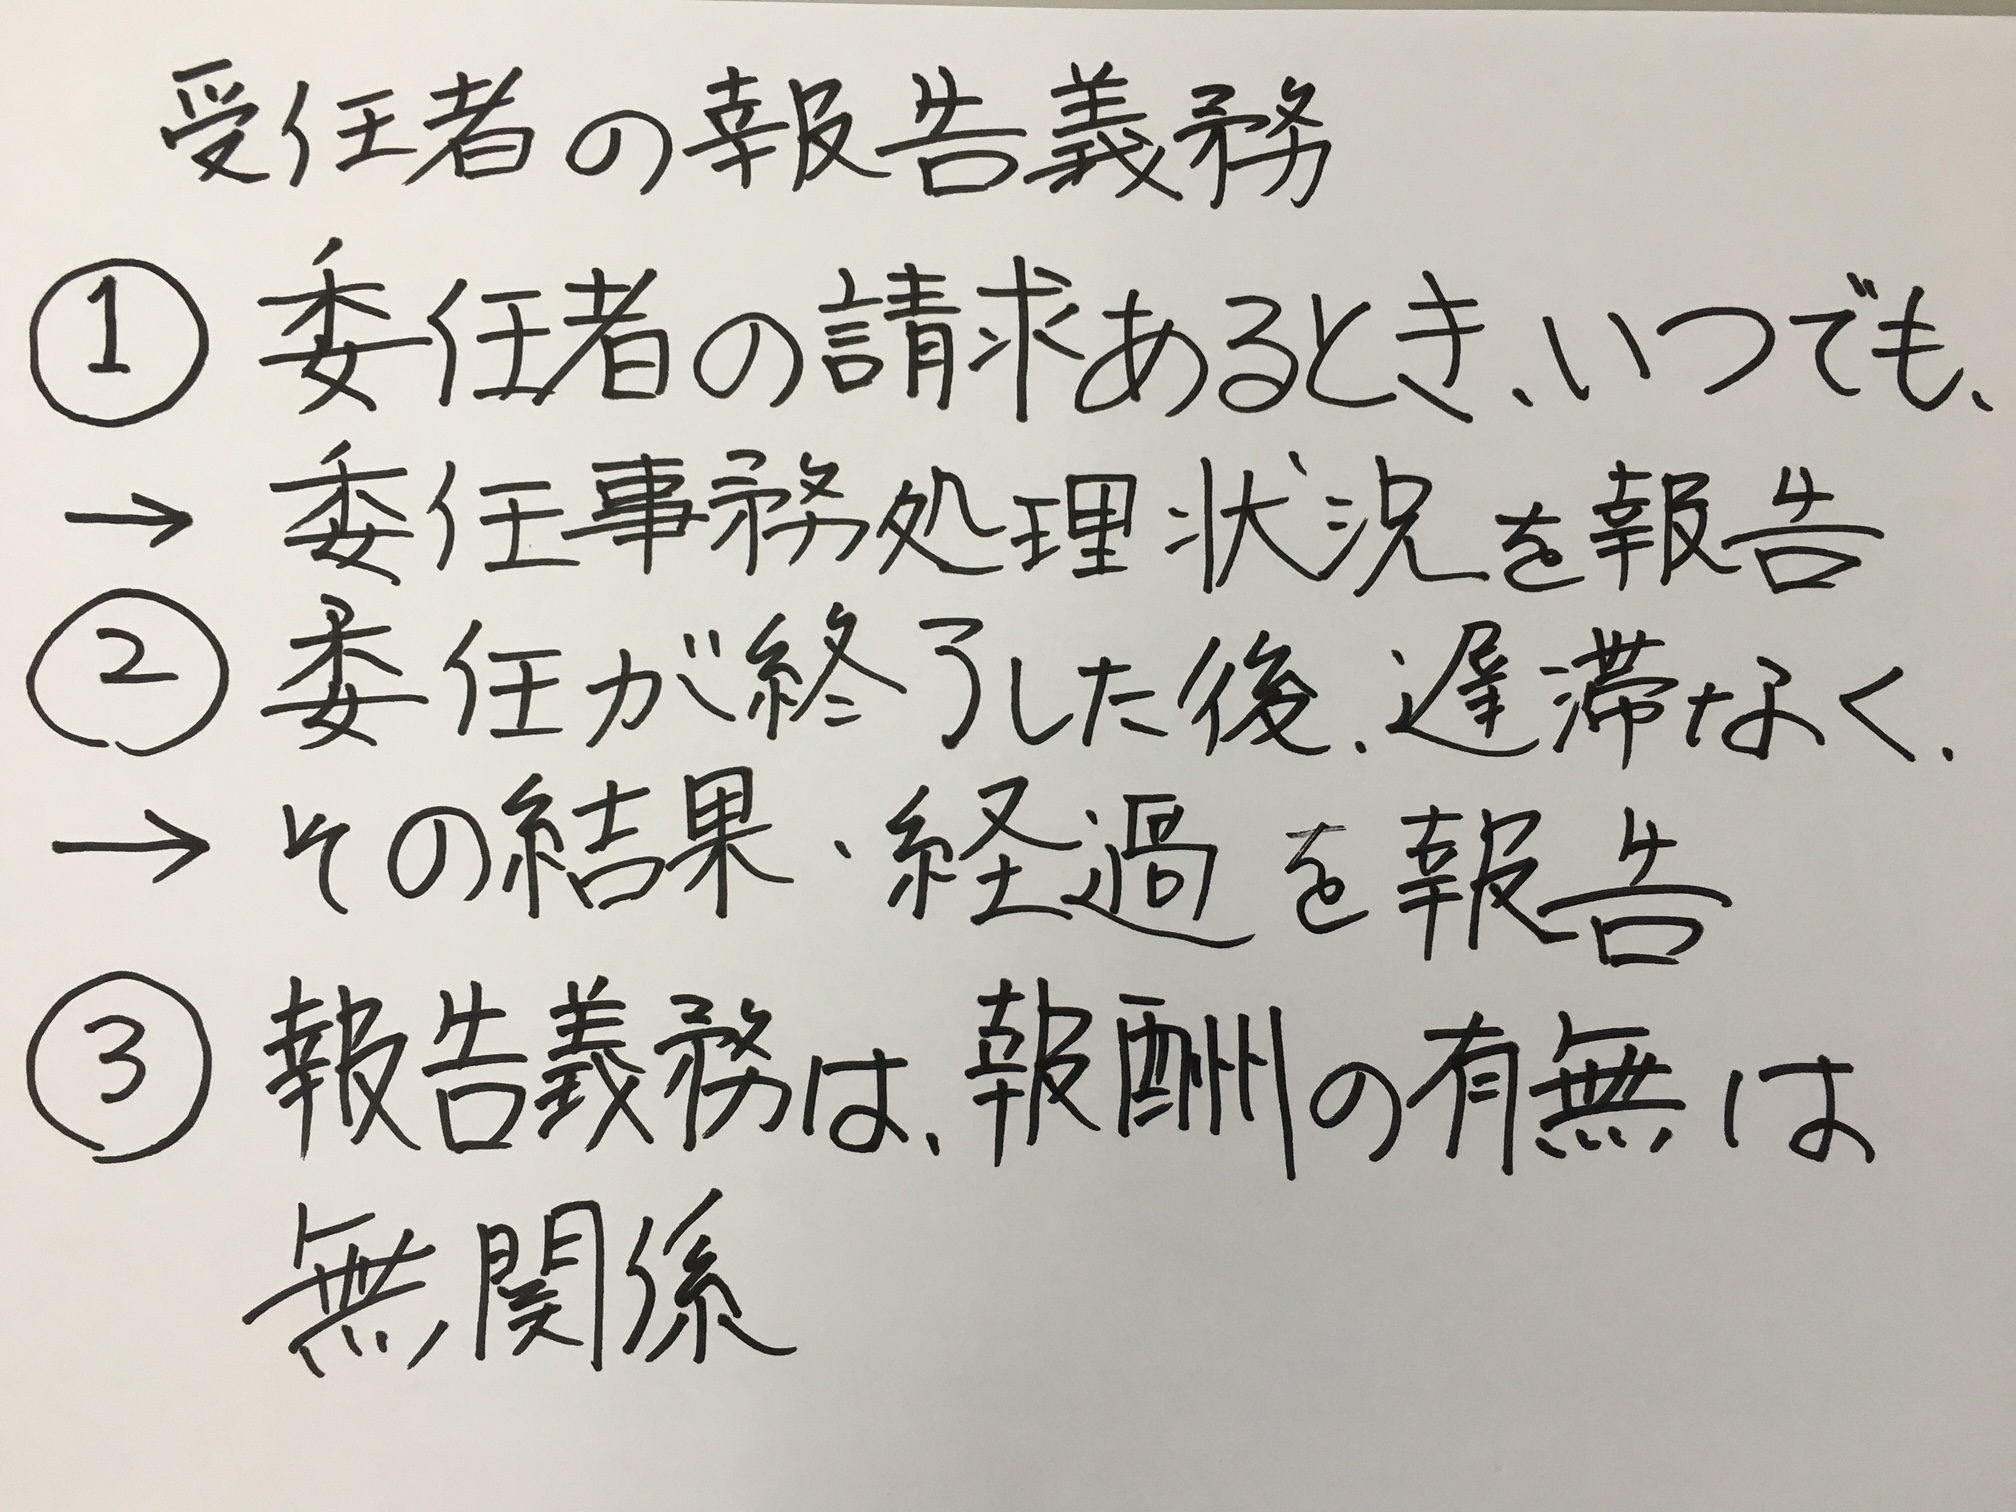 受任者の報告義務
① 委任者の請求あるとき、いつでも、
→ 委任事務処理状況を報告
② 委任が終了した後、遅滞なく、
→ その結果・経過を報告
③ 報告義務は、報酬の有無は
無関係